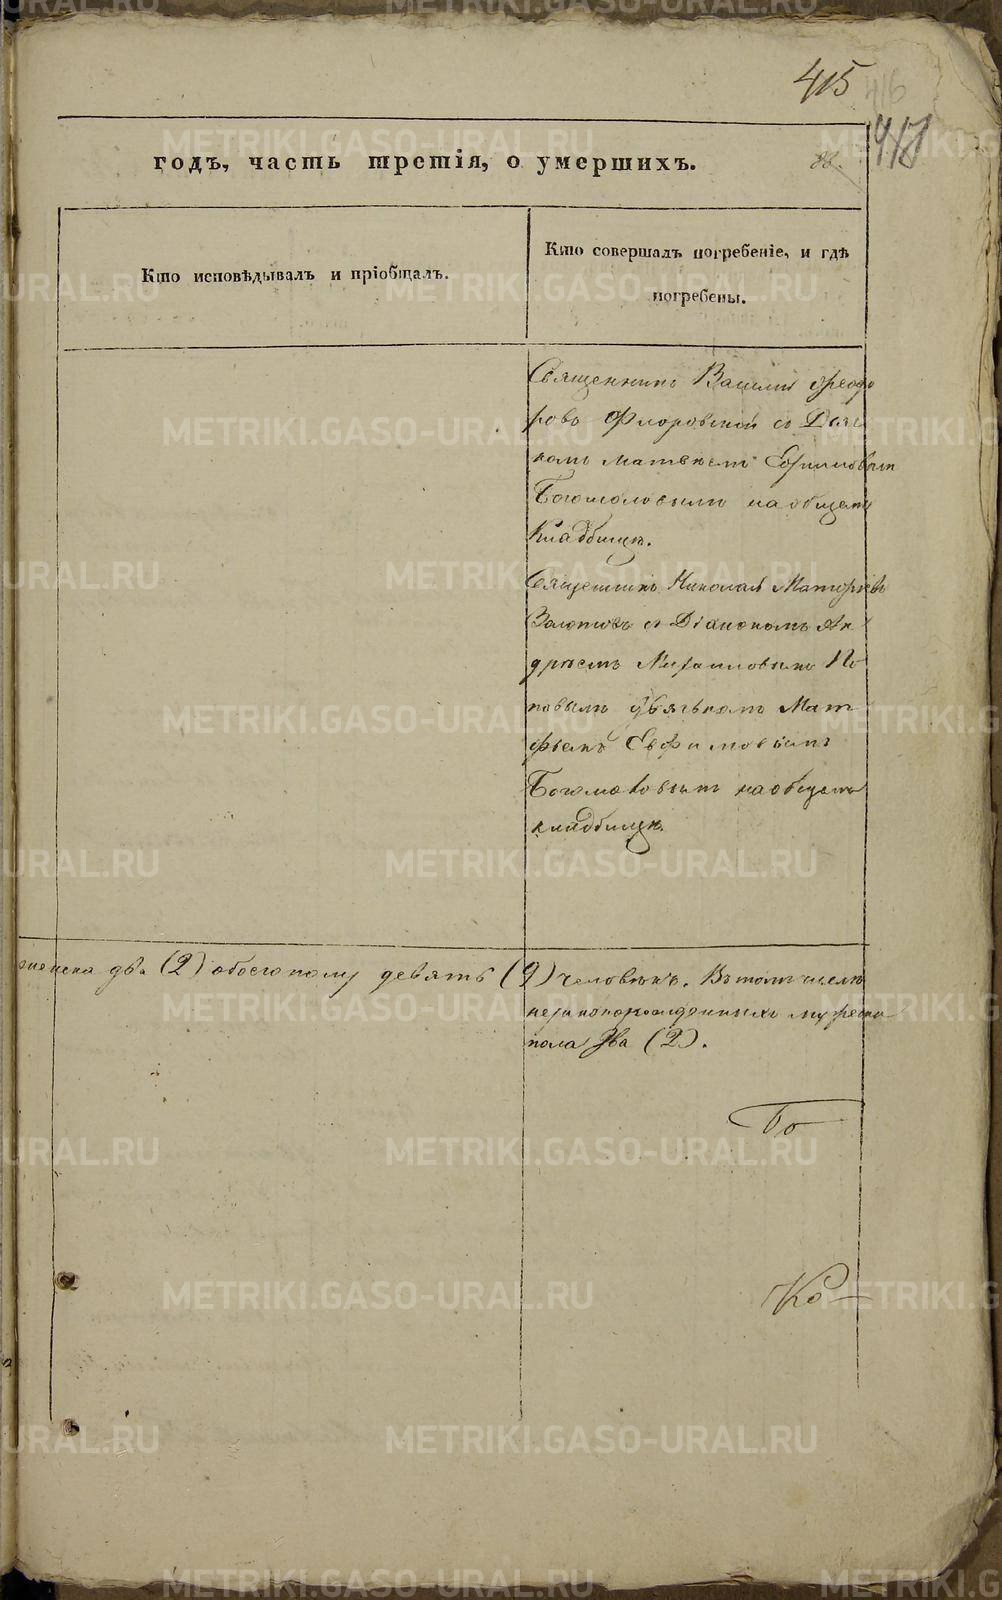 415
416
417
годъ, часть третія, о умершихъ.
88
Кто исповѣдывалъ и пріобщалъ.
Кто совершалъ погребеніе, и гдѣ
погребены.
Священникъ Василій Феодо
ровъ Флоровской съ Дьяч
комъ Матвѣемъ Ефимовымъ
Богомоловымъ на общемъ
Кладбищѣ.
Священникъ Николай Матфѣевъ
Золотовъ съ Діакономъ Ан
дрѣемъ Михаиловымъ По
повымъ дьячкомъ Мат
фѣемъ Евфимовымъ
Богомоловымъ на общемъ
кладбищѣ.
женска два (2) обоего полу девять (9) человѣкъ. Въ томъ числѣ
незаконорожденныхъ мужеска
пола два (2).
Бо
Ко
METRIKI.GASO-URAL.RU